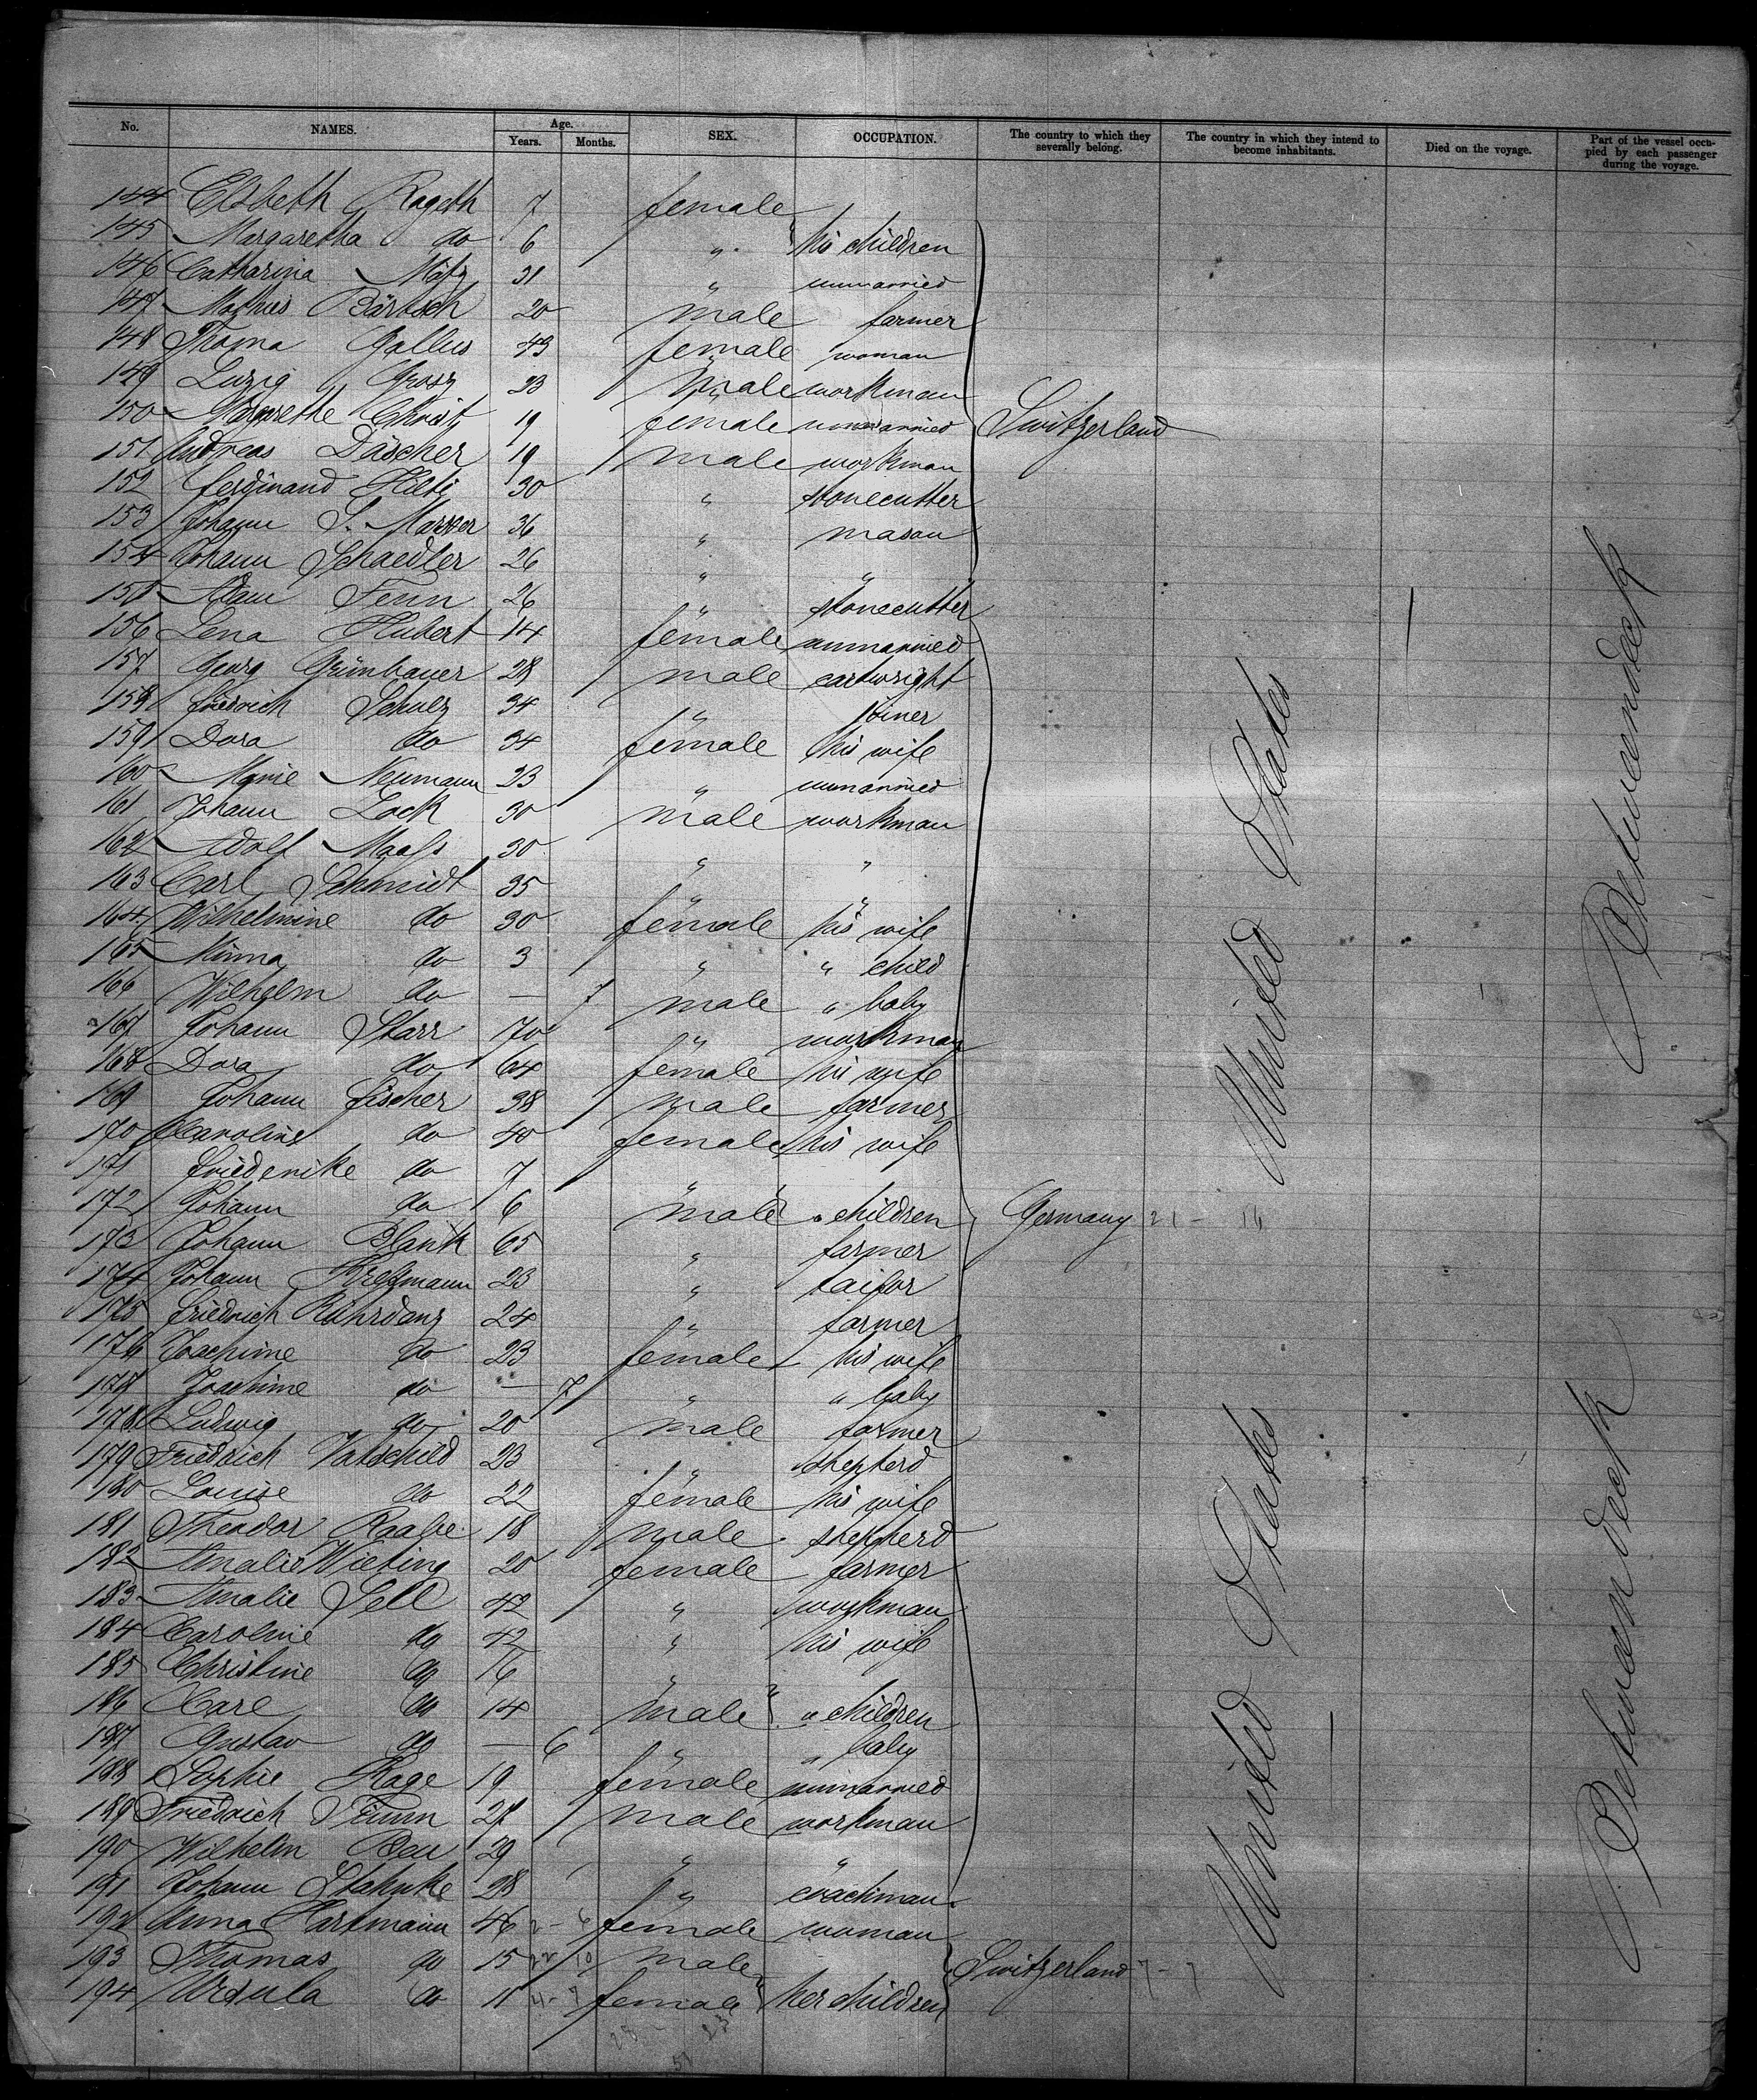 No. NAMES. Age. Years. Months. SEX. OCCUPATION. The country to which they severally belong. The country in which they intend to become inhabitants. Died on the voyage. Part of the vessel occupied by each passenger during the voyage.
144 Elsbeth Rageth 7 female
145 Margaretha do 6 " his children
146 Catharina 31 " unmarried
147 Mathies Bärtsch 20 male farmer
148 Thoma Gallus 43 female woman
149 Luzig Grosz 23 male workman
150 Margrethe Christ 19 female unmarried Switzerland
151 Andreas Däscher 19 male workman
152 Ferdinand Hilti 30 " stonecutter
153 Johann S. Marxer 36 " mason
154 Johann Schaedler 26 " "
155 Adam Fenn 26 " stonecutter
156 Lena Hubert 14 female unmarried
157 Georg Grünbauer 28 male cartwright
158 Friedrich Schulz 34 " joiner
159 Dora do 34 female his wife
160 Marie Neumann 23 " unmarried
161 Johann Lock 30 male workman
162 Adolf Maass 30 " "
163 Carl Schmidt 35 " "
164 Wilhelmine do 30 female his wife
165 Minna do 3 " " child
166 Wilhelm do — male " baby
167 Johann Starr 70 " workman
168 Dora do 64 female his wife
169 Johann Fischer 38 male farmer
170 Caroline do 40 female his wife
171 Friederike do 7 "
172 Johann do 6 male " children Germany 21 - 16
173 Johann Blank 65 " farmer
174 Johann 23 " tailor
175 Friedrich Kührdanz 24 " farmer
176 Joachime do 23 female his wife
177 Joachime do — 7 " " baby
178 Ludwig do 20 male farmer
179 Friedrich Vatschild 23 " shepherd
180 Louise do 22 female his wife
181 Theodor Raabe 18 male shepherd
182 Amalie Wieting 20 female farmer
183 Amalie Sell 42 " workman
184 Caroline do 42 " his wife
185 Christine do 16 "
186 Carl do 14 male " children
187 Gustav do — 6 " " baby
188 Sophie Rage 19 female unmarried
189 Friedrich Timm 27 male workman
190 Wilhelm Beu 29 " "
191 Johann Stahnke 28 " coachman
192 Anna Hartmann 46 female woman
193 Thomas do 15 male Switzerland 7 - 7
194 Ursula do 11 female her children
United States
United States
Betweendeck
Betweendeck